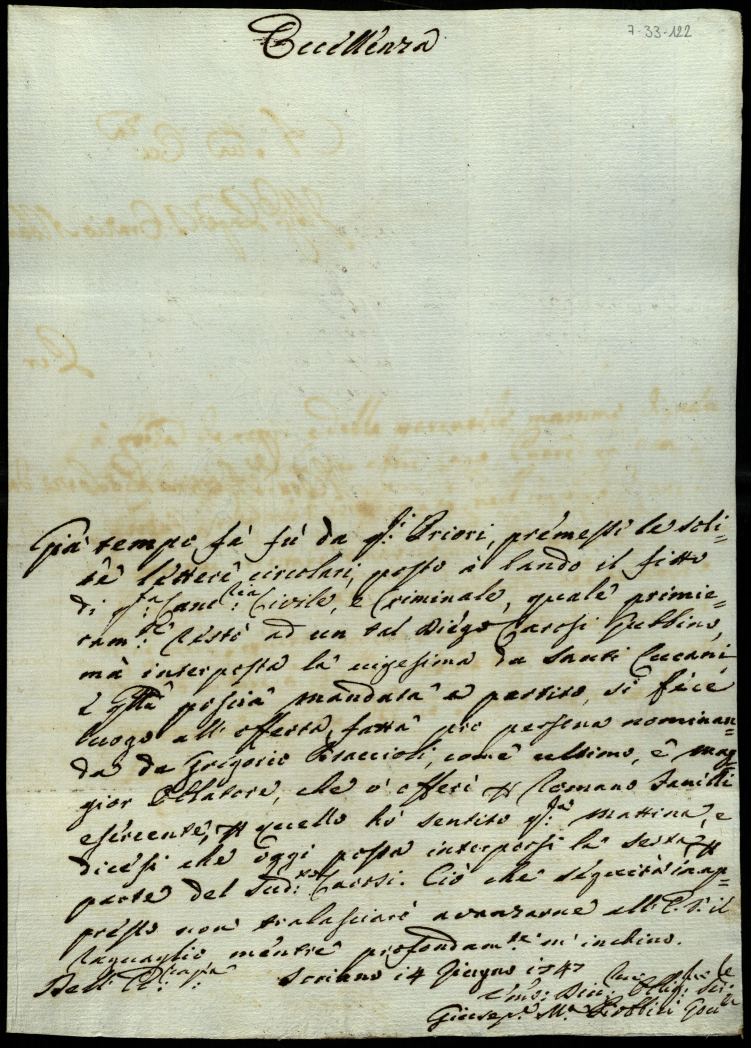 7-33-122
Eccellenza
Già tempo fà fù da q.ti Priori, premesse le soli=
te lettere circolari, posto à lando il fitto
di q.ta Canc.ria Civile, e Criminale, quale primie=
ram.te restò ad un tal Diego Carosi Gubbino,
mà interposta la vigesima da Santi Cucani
e q.ta poscia mandata a partito, si fece
luogo all'offerta fatta pro persona nominan=
da da Gregorio Braccioli, come ultimo, e mag=
gior Oblatore, che o' offerì Romano Santilli
esercente, quello hò sentito q.ta mattina, e
dicesi che oggi possa interporsi la sesta
parte del Sud.to Carosi. Ciò che seguirà in ap=
presso non tralasciarò avanzarne all' E. V. il
raguaglio mentre profondam.te m'inchino.
Dell' E.
Soriano 14 Giugno 1747
Giusep.e M.a Gov.re